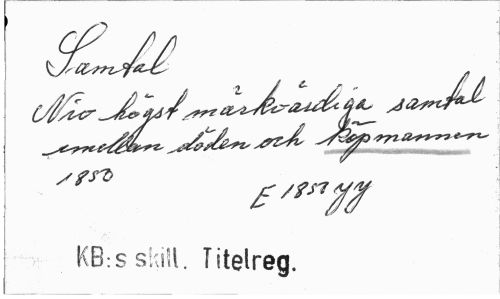 Samtal
Nio högst märkvärdiga samtal
emellan döden och köpmannen
1850
E 1850 yy
KB:s skill. Titelreg.